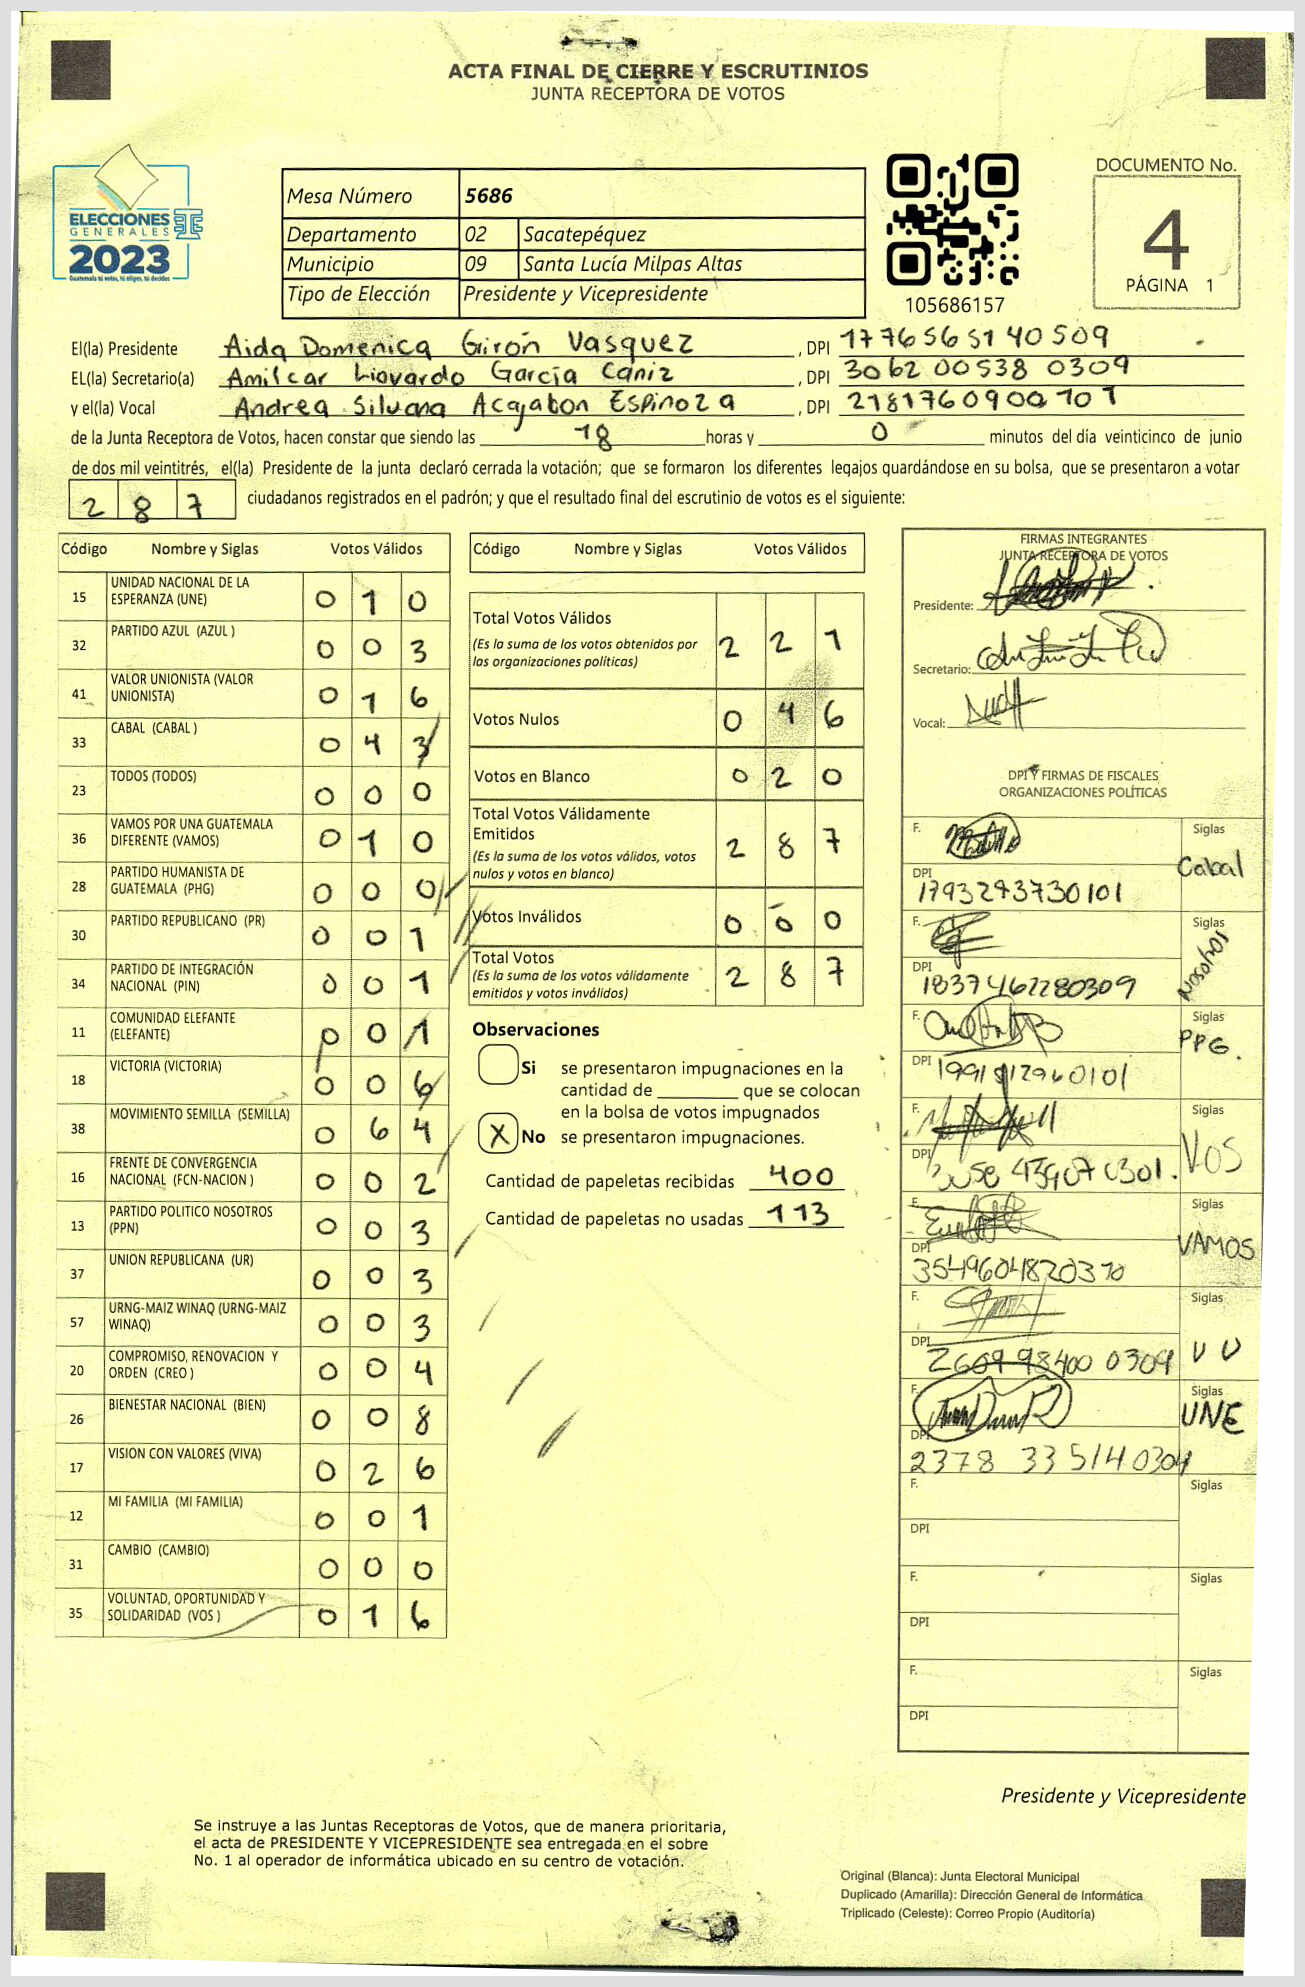 ACTA FINAL DE CIERRE Y ESCRUTINIOS
JUNTA RECEPTORA DE VOTOS
ELECCIONES
GENERALES
2023
Guatemala tú votas, tú eliges, tú decides
Mesa Número 5686
Departamento 02 Sacatepéquez
Municipio 09 Santa Lucía Milpas Altas
Tipo de Elección Presidente y Vicepresidente
105686157
DOCUMENTO No.
4
PÁGINA 1
El(la) Presidente Aida Domenica Girón Vasquez, DPI 1776565140509
EL(la) Secretario(a) Amilcar Liovardo García Caniz, DPI 3062 00538 0309
y el(la) Vocal Andrea Silvana Acajabon Espinoza, DPI 2181760900101
de la Junta Receptora de Votos, hacen constar que siendo las 18 horas y 0 minutos del día veinticinco de junio
de dos mil veintitrés, el(la) Presidente de la junta declaró cerrada la votación; que se formaron los diferentes legajos guardándose en su bolsa, que se presentaron a votar
287 ciudadanos registrados en el padrón; y que el resultado final del escrutinio de votos es el siguiente:
Código Nombre y Siglas Votos Válidos
15 UNIDAD NACIONAL DE LA ESPERANZA (UNE) 0 1 0
32 PARTIDO AZUL (AZUL ) 0 0 3
41 VALOR UNIONISTA (VALOR UNIONISTA) 0 1 6
33 CABAL (CABAL ) 0 4 3
23 TODOS (TODOS) 0 0 0
36 VAMOS POR UNA GUATEMALA DIFERENTE (VAMOS) 0 1 0
28 PARTIDO HUMANISTA DE GUATEMALA (PHG) 0 0 0
30 PARTIDO REPUBLICANO (PR) 0 0 1
34 PARTIDO DE INTEGRACIÓN NACIONAL (PIN) 0 0 1
11 COMUNIDAD ELEFANTE (ELEFANTE) 0 0 1
18 VICTORIA (VICTORIA) 0 0 6
38 MOVIMIENTO SEMILLA (SEMILLA) 0 6 4
16 FRENTE DE CONVERGENCIA NACIONAL (FCN-NACION ) 0 0 2
13 PARTIDO POLITICO NOSOTROS (PPN) 0 0 3
37 UNION REPUBLICANA (UR) 0 0 3
57 URNG-MAIZ WINAQ (URNG-MAIZ WINAQ) 0 0 3
20 COMPROMISO, RENOVACION Y ORDEN (CREO ) 0 0 4
26 BIENESTAR NACIONAL (BIEN) 0 0 8
17 VISION CON VALORES (VIVA) 0 2 6
12 MI FAMILIA (MI FAMILIA) 0 0 1
31 CAMBIO (CAMBIO) 0 0 0
35 VOLUNTAD, OPORTUNIDAD Y SOLIDARIDAD (VOS ) 0 1 6
Código Nombre y Siglas Votos Válidos
Total Votos Válidos 2 2 1
(Es la suma de los votos obtenidos por
las organizaciones políticas)
Votos Nulos 0 4 6
Votos en Blanco 0 2 0
Total Votos Válidamente
Emitidos 2 8 7
(Es la suma de los votos válidos, votos
nulos y votos en blanco)
Votos Inválidos 0 0 0
Total Votos 2 8 7
(Es la suma de los votos válidamente
emitidos y votos inválidos)
Observaciones
Si se presentaron impugnaciones en la
cantidad de ________ que se colocan
en la bolsa de votos impugnados
X No se presentaron impugnaciones.
Cantidad de papeletas recibidas 400
Cantidad de papeletas no usadas 113
FIRMAS INTEGRANTES
JUNTA RECEPTORA DE VOTOS
Presidente:
Secretario:
Vocal:
DPI Y FIRMAS DE FISCALES
ORGANIZACIONES POLÍTICAS
F. Siglas
Cabal
DPI
1793293730101
F. Siglas
Nosotros
DPI
1837462280309
F. Siglas
PPG.
DPI 1991812960101
F. Siglas
VOS
DPI
F. Siglas
VAMOS
DPI
3549604820310
F. Siglas
DPI VU
2609 98400 0309
F. Siglas
UNE
DPI
2378 33514 0304
F. Siglas
DPI
F. Siglas
DPI
F. Siglas
DPI
Presidente y Vicepresidente
Se instruye a las Juntas Receptoras de Votos, que de manera prioritaria,
el acta de PRESIDENTE Y VICEPRESIDENTE sea entregada en el sobre
No. 1 al operador de informática ubicado en su centro de votación.
Original (Blanca): Junta Electoral Municipal
Duplicado (Amarilla): Dirección General de Informática
Triplicado (Celeste): Correo Propio (Auditoría)